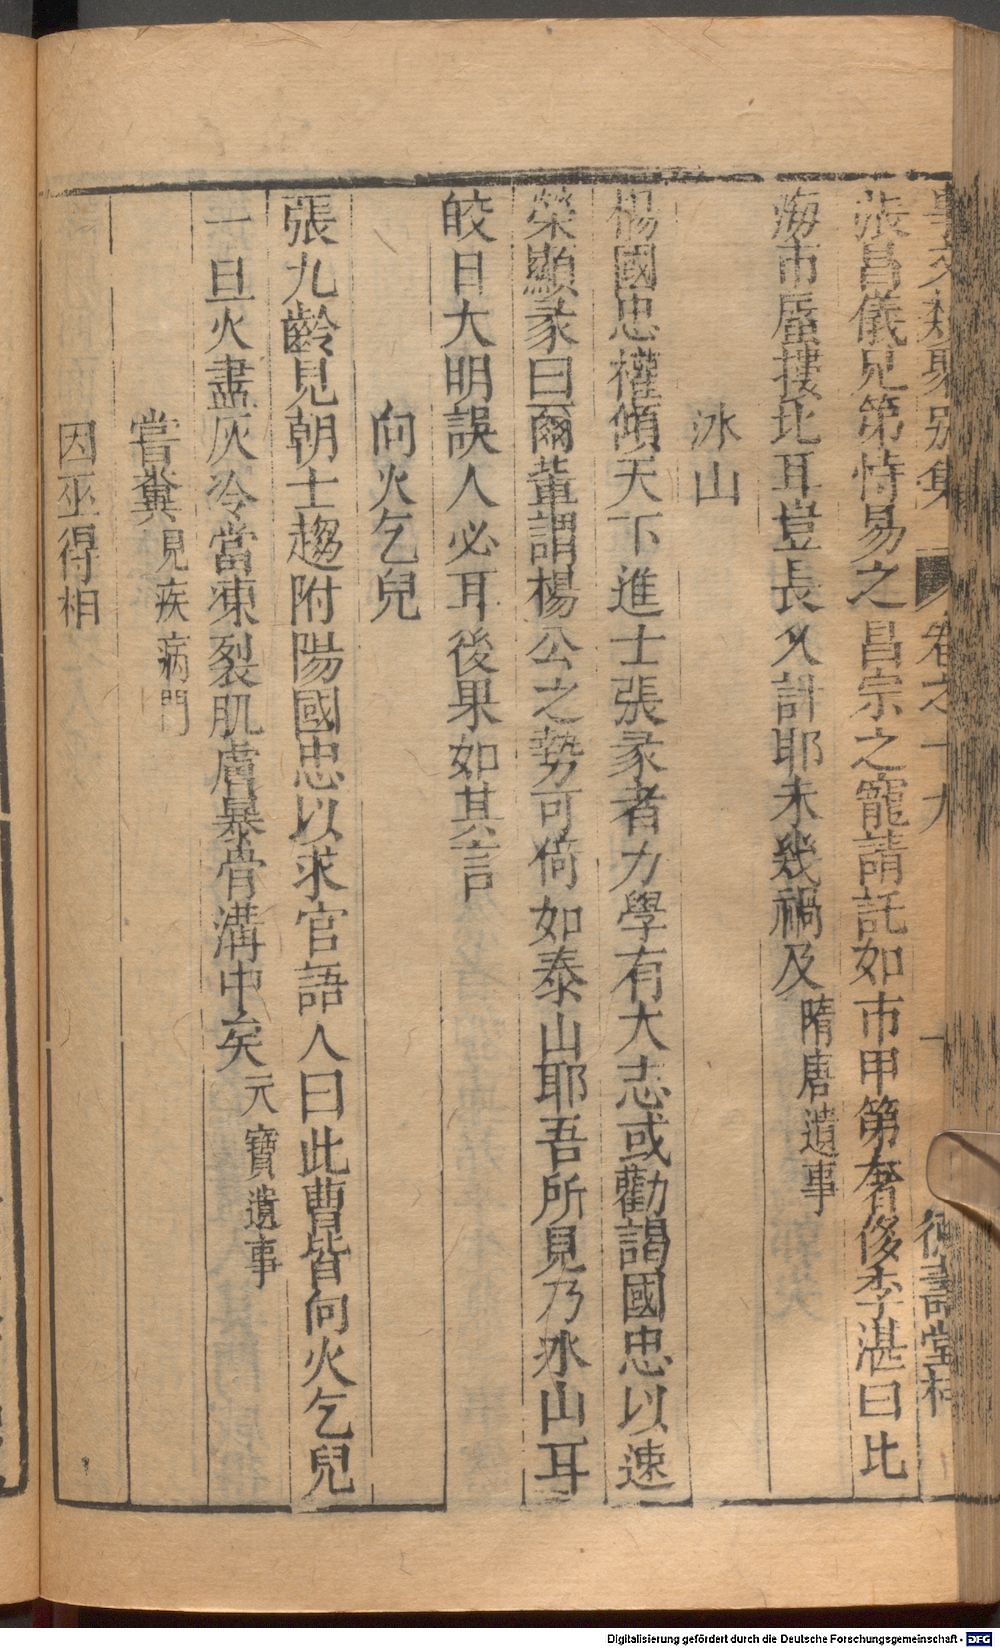 事文類聚別集 卷之十九 十 德壽堂梓
張昌儀兄弟恃易之昌宗之寵請託如市甲第奢侈李湛曰比
海市蜃摟北耳豈長久計耶未幾禍及 隋唐遺事
冰山
楊國忠權傾天下進士張彖者力學有大志或勸謁國忠以速
榮顯彖曰爾輩謂楊公之勢可倚如泰山耶吾所見乃冰山耳
皎日大明誤人必耳後果如其言
向火乞兒
張九齡見朝士趨附陽國忠以求官語人曰此曹皆向火乞兒
一旦火盡灰冷當凍裂肌膚暴骨溝中矣 元寶遺事
嘗糞 見疾病門
因巫得相
Digitalisierung gefördert durch die Deutsche Forschungsgemeinschaft - DFG